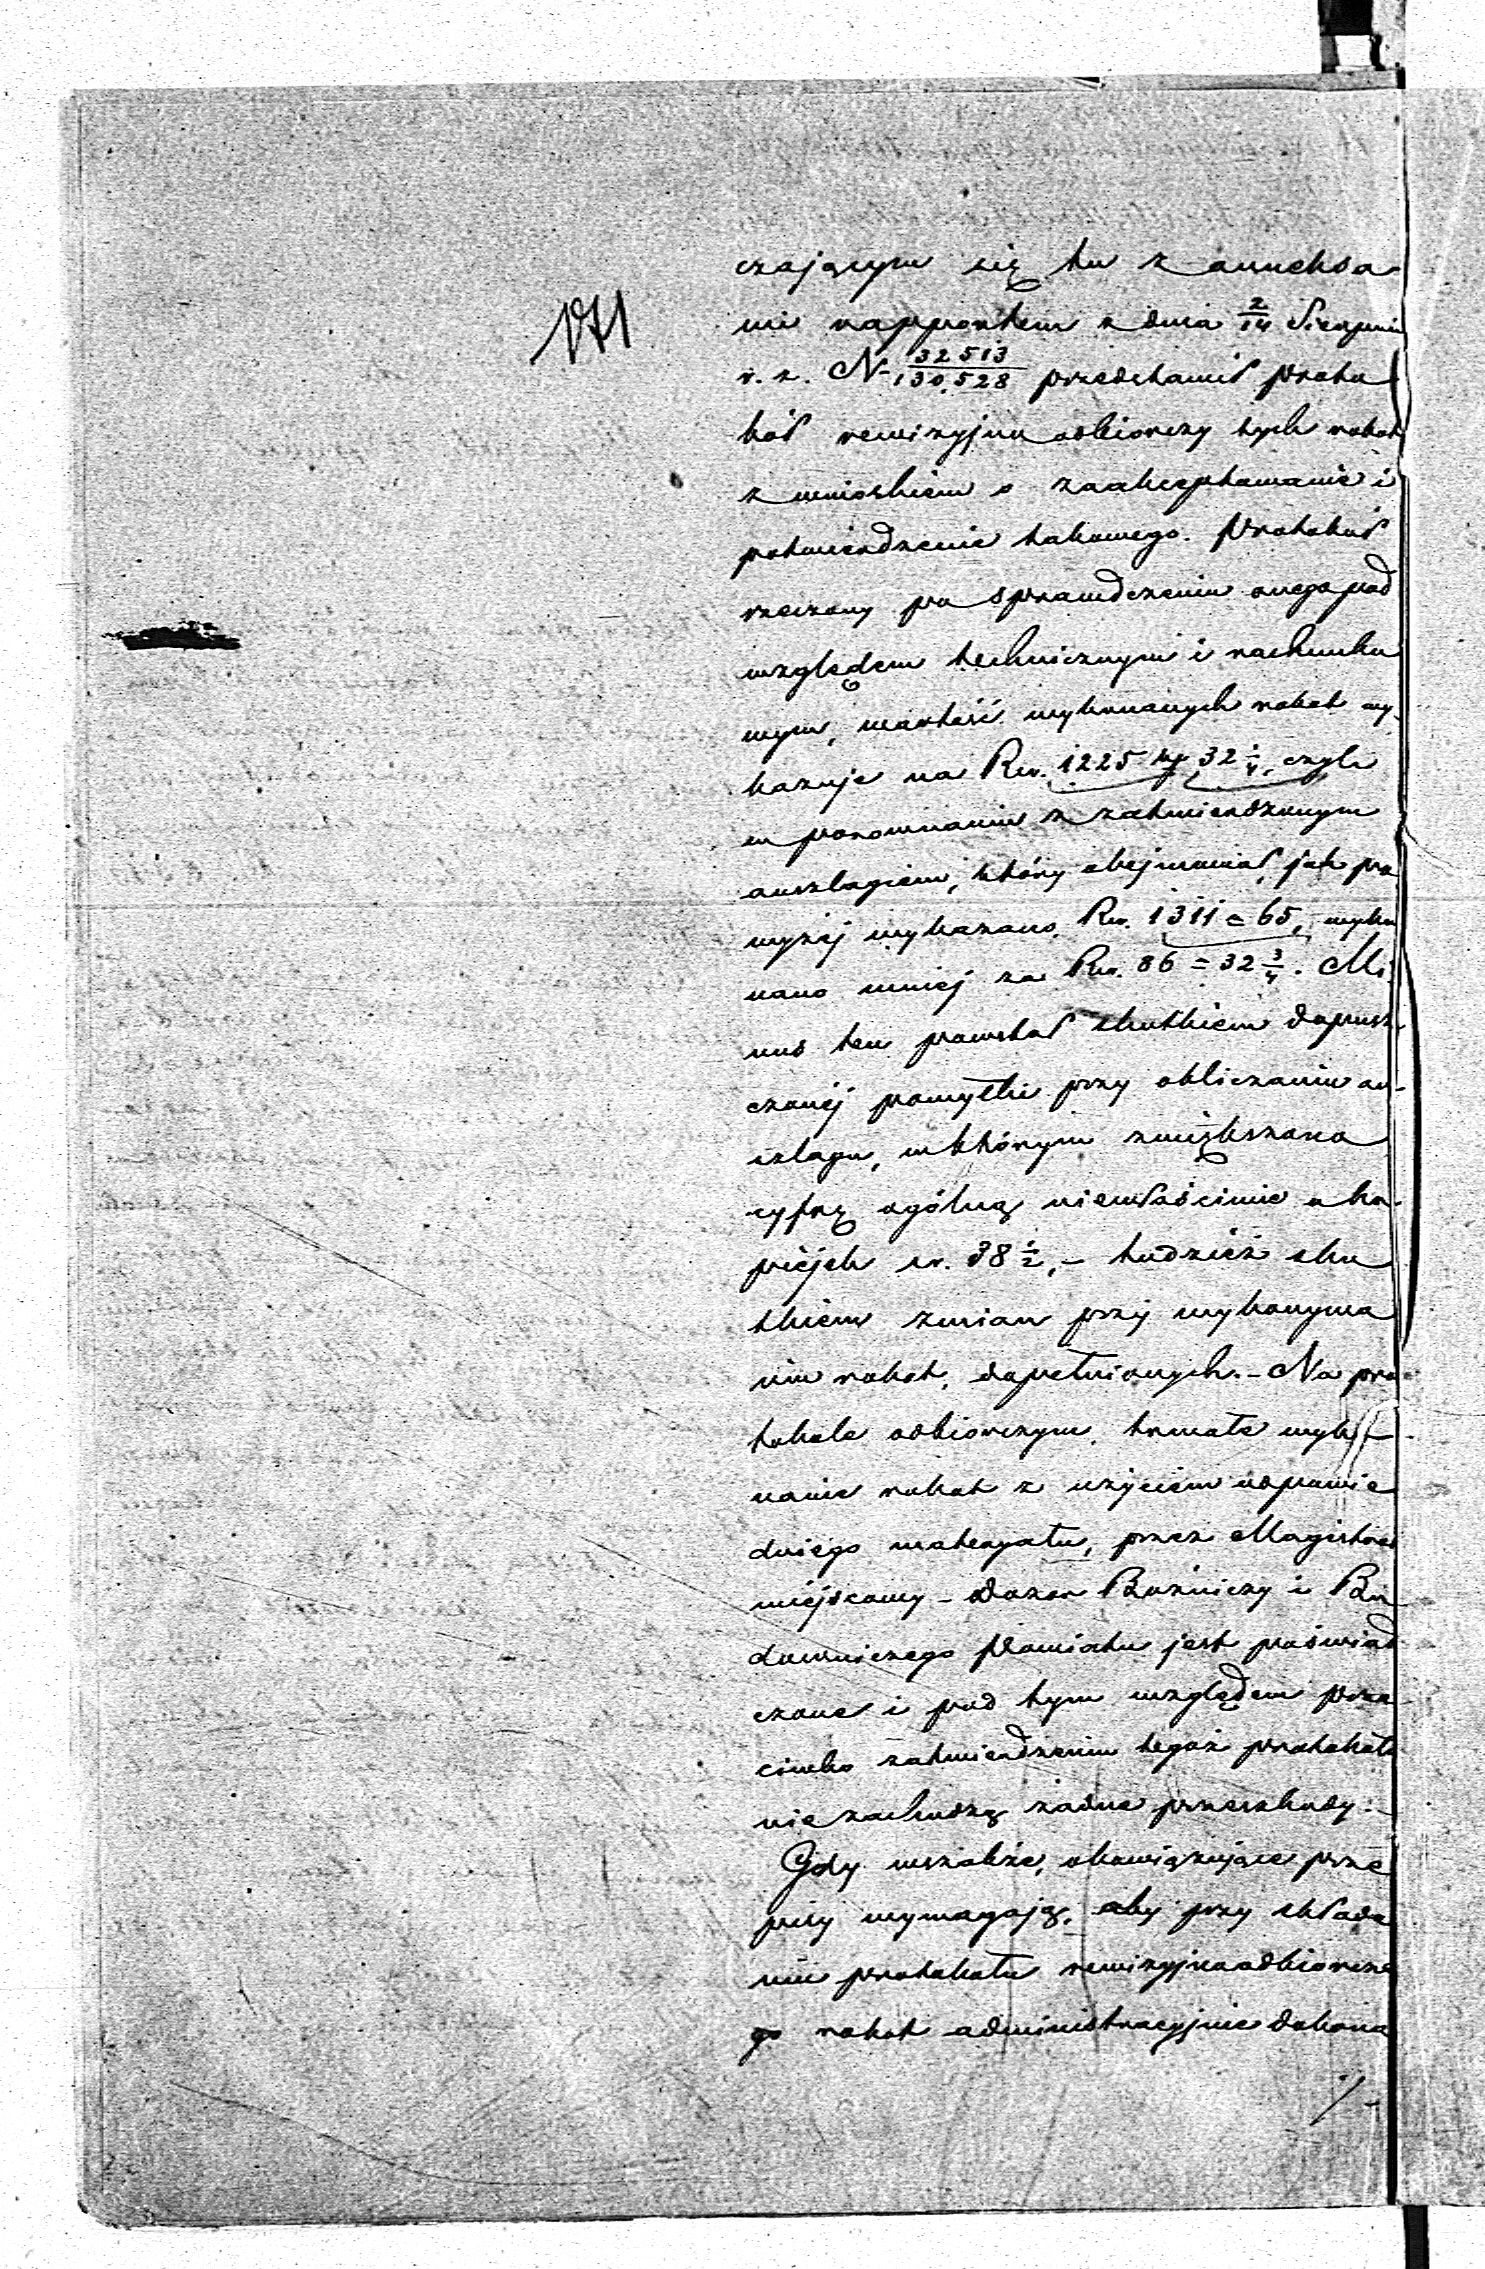 czającym się tu z anneksa-
mi rapportem z dnia 2/14 Sierpnia
r. z. N 32513/130,528 przedstawił proto
kół rewizyjno odbiorczy tych robot
z wnioskiem o zaakceptowanie i
potwierdzenie takowego. Protokuł
rzeczony po sprawdzeniu onego pod
względem technicznym i rachunko
wym, wartość wykonanych robot wy-
kazuje na Rsr. 1225 kp 32 1/4, czyli
w porownaniu z zatwierdzonym
anszlagiem, który obejmował, jak po
wyżej wykazano, Rsr. 1311 = 65, wyko
nano mniej za Rsr. 86 = 32 3/4. Mi
nus ten powstał skutkiem dopusz-
czonéj pomyłki przy obliczaniu an-
szlagu, w którym zwiększono
cyfrę ogólną niewłaściwie o ko-
piéjek sr. 38 1/2, – tudzież sku
tkiem zmian przy wykonywa
niu robot, dopełnionych. – Na pro
tokole odbiorczym, trwałe wyko-
nanie robot z użyciem odpowie
dniego materyału, przez Magistrat
miéjscowy – Dozor Bóżniczy i Bu
downiczego Powiatu jest poświad
czone i pod tym względem prze
ciwko zatwierdzeniu tegoż protokołu
nie zachodzą żadne przeszkody. –
Gdy wszakże, obowiązujące prze
pisy wymagają, aby przy składa
niu protokołu rewizyjno odbiorcze
go robot administracyjnie dokona
./.